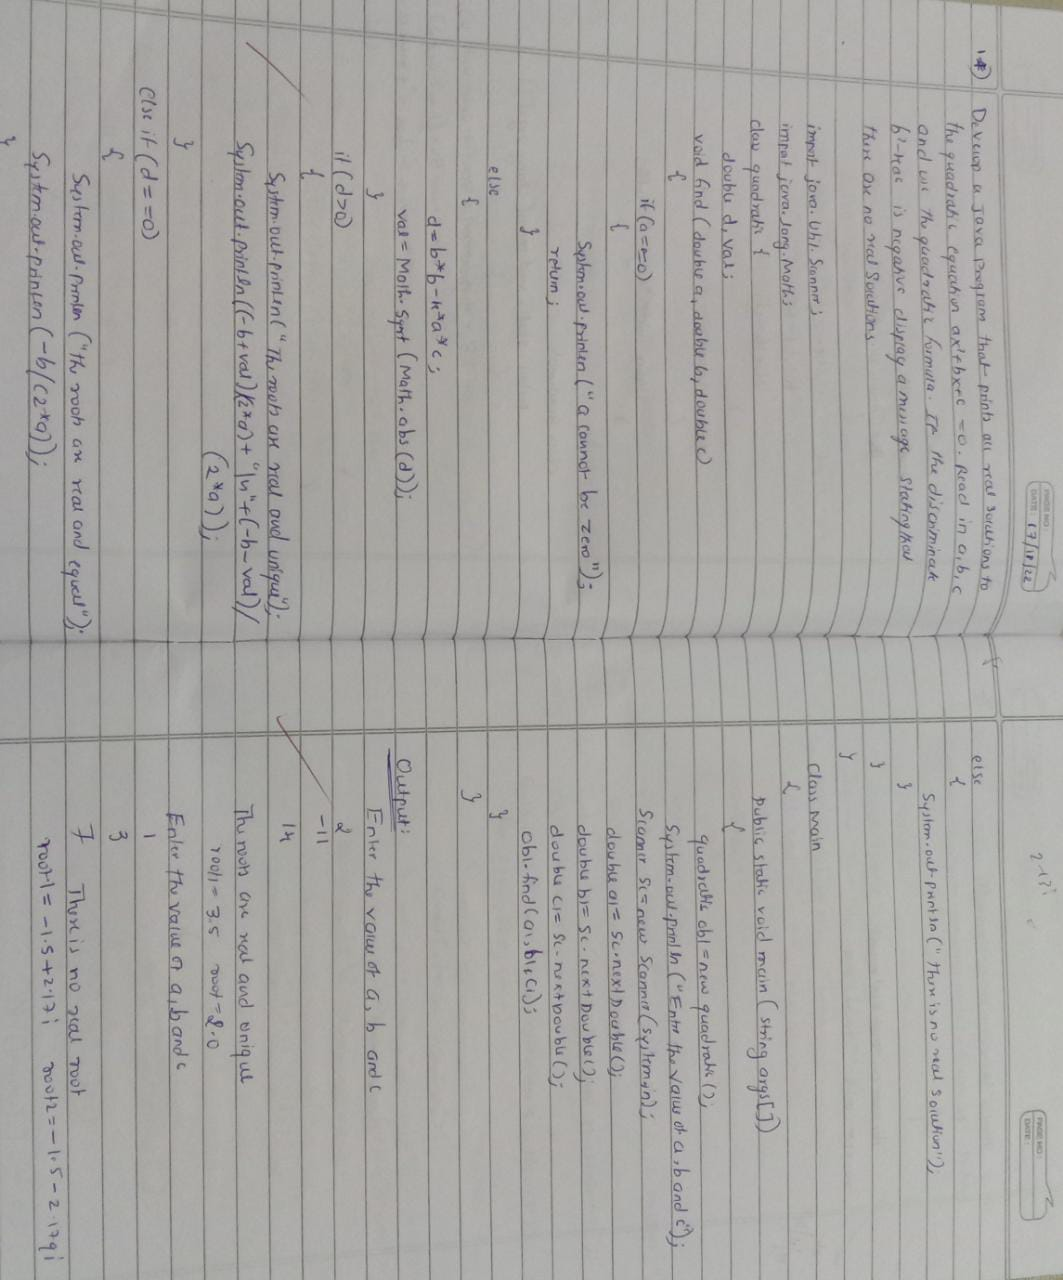 PAGE NO:
DATE: 17/12/22
1) Develop a Java program that prints all real solutions to
the quadratic equation ax²+bx+c =0. Read in a,b,c
and use the quadratic formula. If the discriminate
b²-4ac is negative display a message stating that
there are no real solutions
import java.util.Scanner;
import java.lang.Math;
class quadratic {
double d, val;
void find (double a, double b, double c)
{
if (a==0)
{
System.out.println ("a cannot be zero");
return;
}
else
{
d=b*b-4*a*c;
val = Math.sqrt (Math.abs(d));
}
if (d>0)
{
System.out.println ("The roots are real and unique");
System.out.println ((-b+val)/(2*a) + "\n" + (-b-val)/
(2*a));
}
else if (d==0)
{
System.out.println ("the roots are real and equal");
System.out.println (-b/(2*a));
}
2.17i
PAGE NO:
DATE:
else
{
System.out.println ("There is no real solution");
}
}
}
class main
{
public static void main (string args[])
{
quadratic ob1 = new quadratic ();
System.out.println ("Enter the value of a, b and c");
Scanner sc = new Scanner (system.in);
double a1 = sc.nextDouble();
double b1 = sc.nextDouble();
double c1 = sc.nextDouble();
ob1.find(a1,b1,c1);
}
}
Output:
Enter the value of a, b and c
2
-11
14
The roots are real and unique
root1 = 3.5 root = 2.0
Enter the value of a, b and c
1
3
7 There is no real root
root1 = -1.5+2.17i root2 = -1.5-2.179i